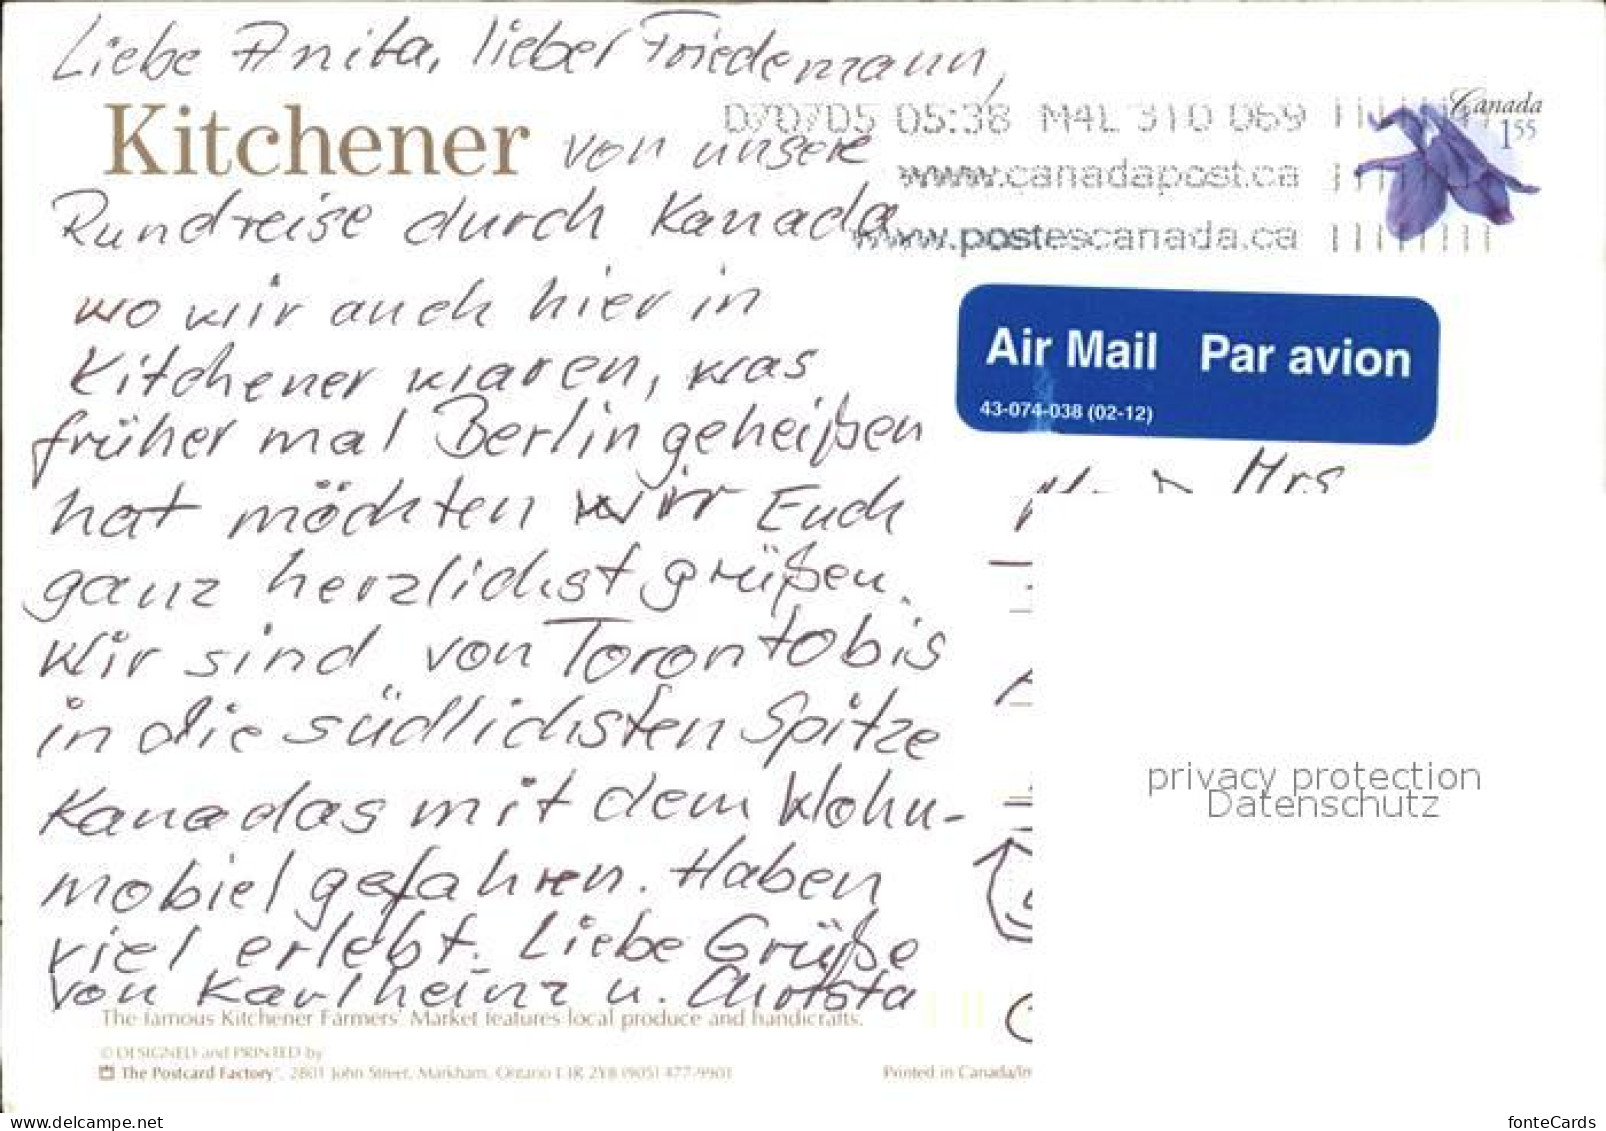 Liebe Anita, lieber Friedemann,
Kitchener von unsere
Rundreise durch Kanada
wo wir auch hier in
Kitchener waren, was
früher mal Berlin geheißen
hat möchten wir Euch
ganz herzlichst grüßen.
Wir sind von Toronto bis
in die südlichsten Spitze
Kanadas mit dem Wohn-
mobiel gefahren. Haben
viel erlebt. Liebe Grüße
von Karlheinz u. Christa
The famous Kitchener Farmers' Market features local produce and handicrafts.
© DESIGNED and PRINTED by
The Postcard Factory™, 2801 John Street, Markham, Ontario L3R 2Y8 (905) 477-9901
Printed in Canada/Im
070705 05:38 M4L 310 069
www.canadapost.ca
www.postescanada.ca
Canada
1.55
Air Mail Par avion
43-074-038 (02-12)
Mrs
privacy protection
Datenschutz
www.delcampe.net
fonteCards